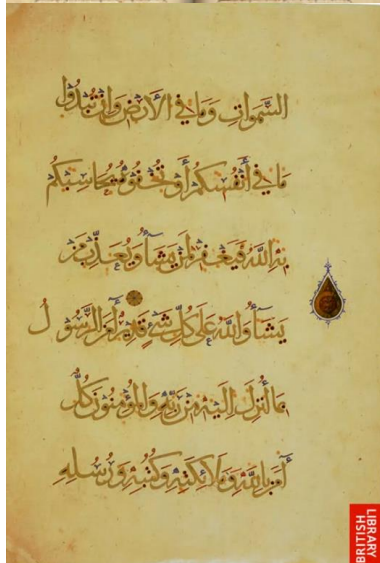 السَّمَواتِ وَمَا فِي الْأَرْضِ وَإِنْ تُبْدُوا
مَا فِي أَنْفُسِكُمْ أَوْ تُخْفُوهُ يُحَاسِبْكُمْ
بِهِ اللَّهُ فَيَغْفِرُ لِمَنْ يَشَاءُ وَيُعَذِّبُ مَنْ
يَشَاءُ وَاللَّهُ عَلَى كُلِّ شَيْءٍ قَدِيرٌ آمَنَ الرَّسُولُ
بِمَا أُنْزِلَ إِلَيْهِ مِنْ رَبِّهِ وَالْمُؤْمِنُونَ كُلٌّ
آمَنَ بِاللَّهِ وَمَلَائِكَتِهِ وَكُتُبِهِ وَرُسُلِهِ
BRITISH
LIBRARY